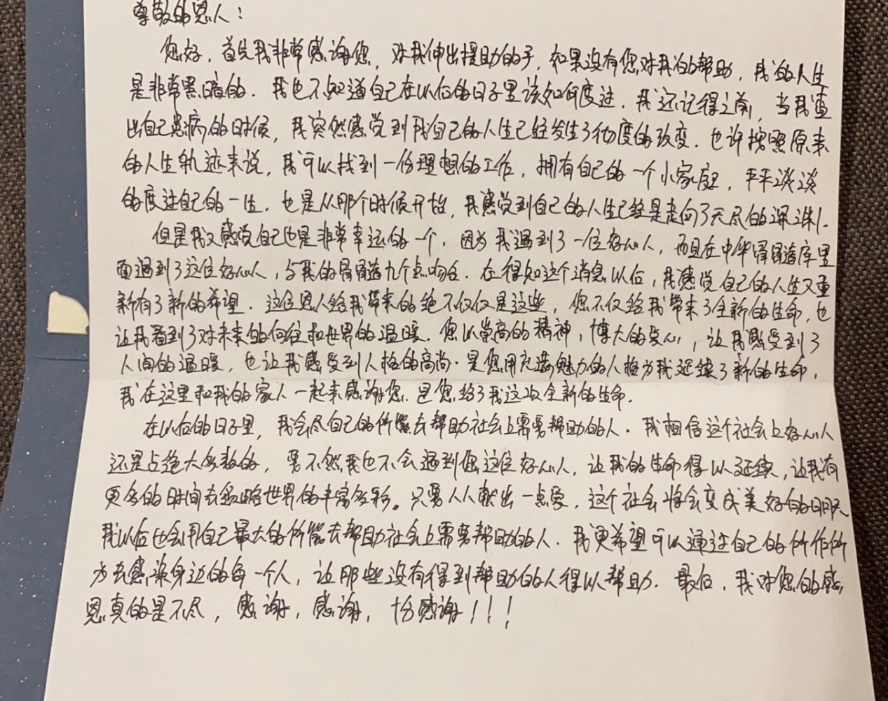 尊敬的恩人：
您好，首先我非常感谢您，对我伸出援助的手，如果没有您对我的帮助，我的人生
是非常黑暗的．我也不知道自己在以后的日子里该如何度过．我还记得之前，当我查
出自己患病的时候，我突然感觉到我自己的人生已经发生了彻度的改变．也许按照原来
的人生轨迹来说，我可以找到一份理想的工作，拥有自己的一个小家庭，平平淡淡
的度过自己的一生．也是从那个时候开始，我感觉到自己的人生已经是走向了无尽的深渊．
但是我又感觉自己也是非常幸运的一个，因为我遇到了一位好心人，而且在中华骨髓库里
面遇到了这位好心人，与我的骨髓九个点吻合．在得知这个消息以后，我感觉自己的人生又重
新有了新的希望．这位恩人给我带来的绝不仅仅是这些，您不仅给我带来了全新的生命，也
让我看到了对未来的向往和世界的温暖．您以崇高的精神，博大的爱心，让我感受到了
人间的温暖，也让我感受到人格的高尚．是您用充满魅力的人格为我延续了新的生命，
我在这里和我的家人一起来感谢您．是您给了我这次全新的生命．
在以后的日子里，我会尽自己的所能去帮助社会上需要帮助的人．我相信这个社会上好心人
还是占绝大多数的，要不然我也不会遇到您这位好心人，让我的生命得以延续，让我有
更多的时间去领略世界的丰富多彩。只要人人献出一点爱，这个社会将会变成美好的明天
我以后也会用自己最大的所能去帮助社会上需要帮助的人．我更希望可以通过自己的所作所
为去感染身边的每一个人，让那些没有得到帮助的人得以帮助．最后，我对您的感
恩真的是不尽，感谢，感谢，十分感谢！！！